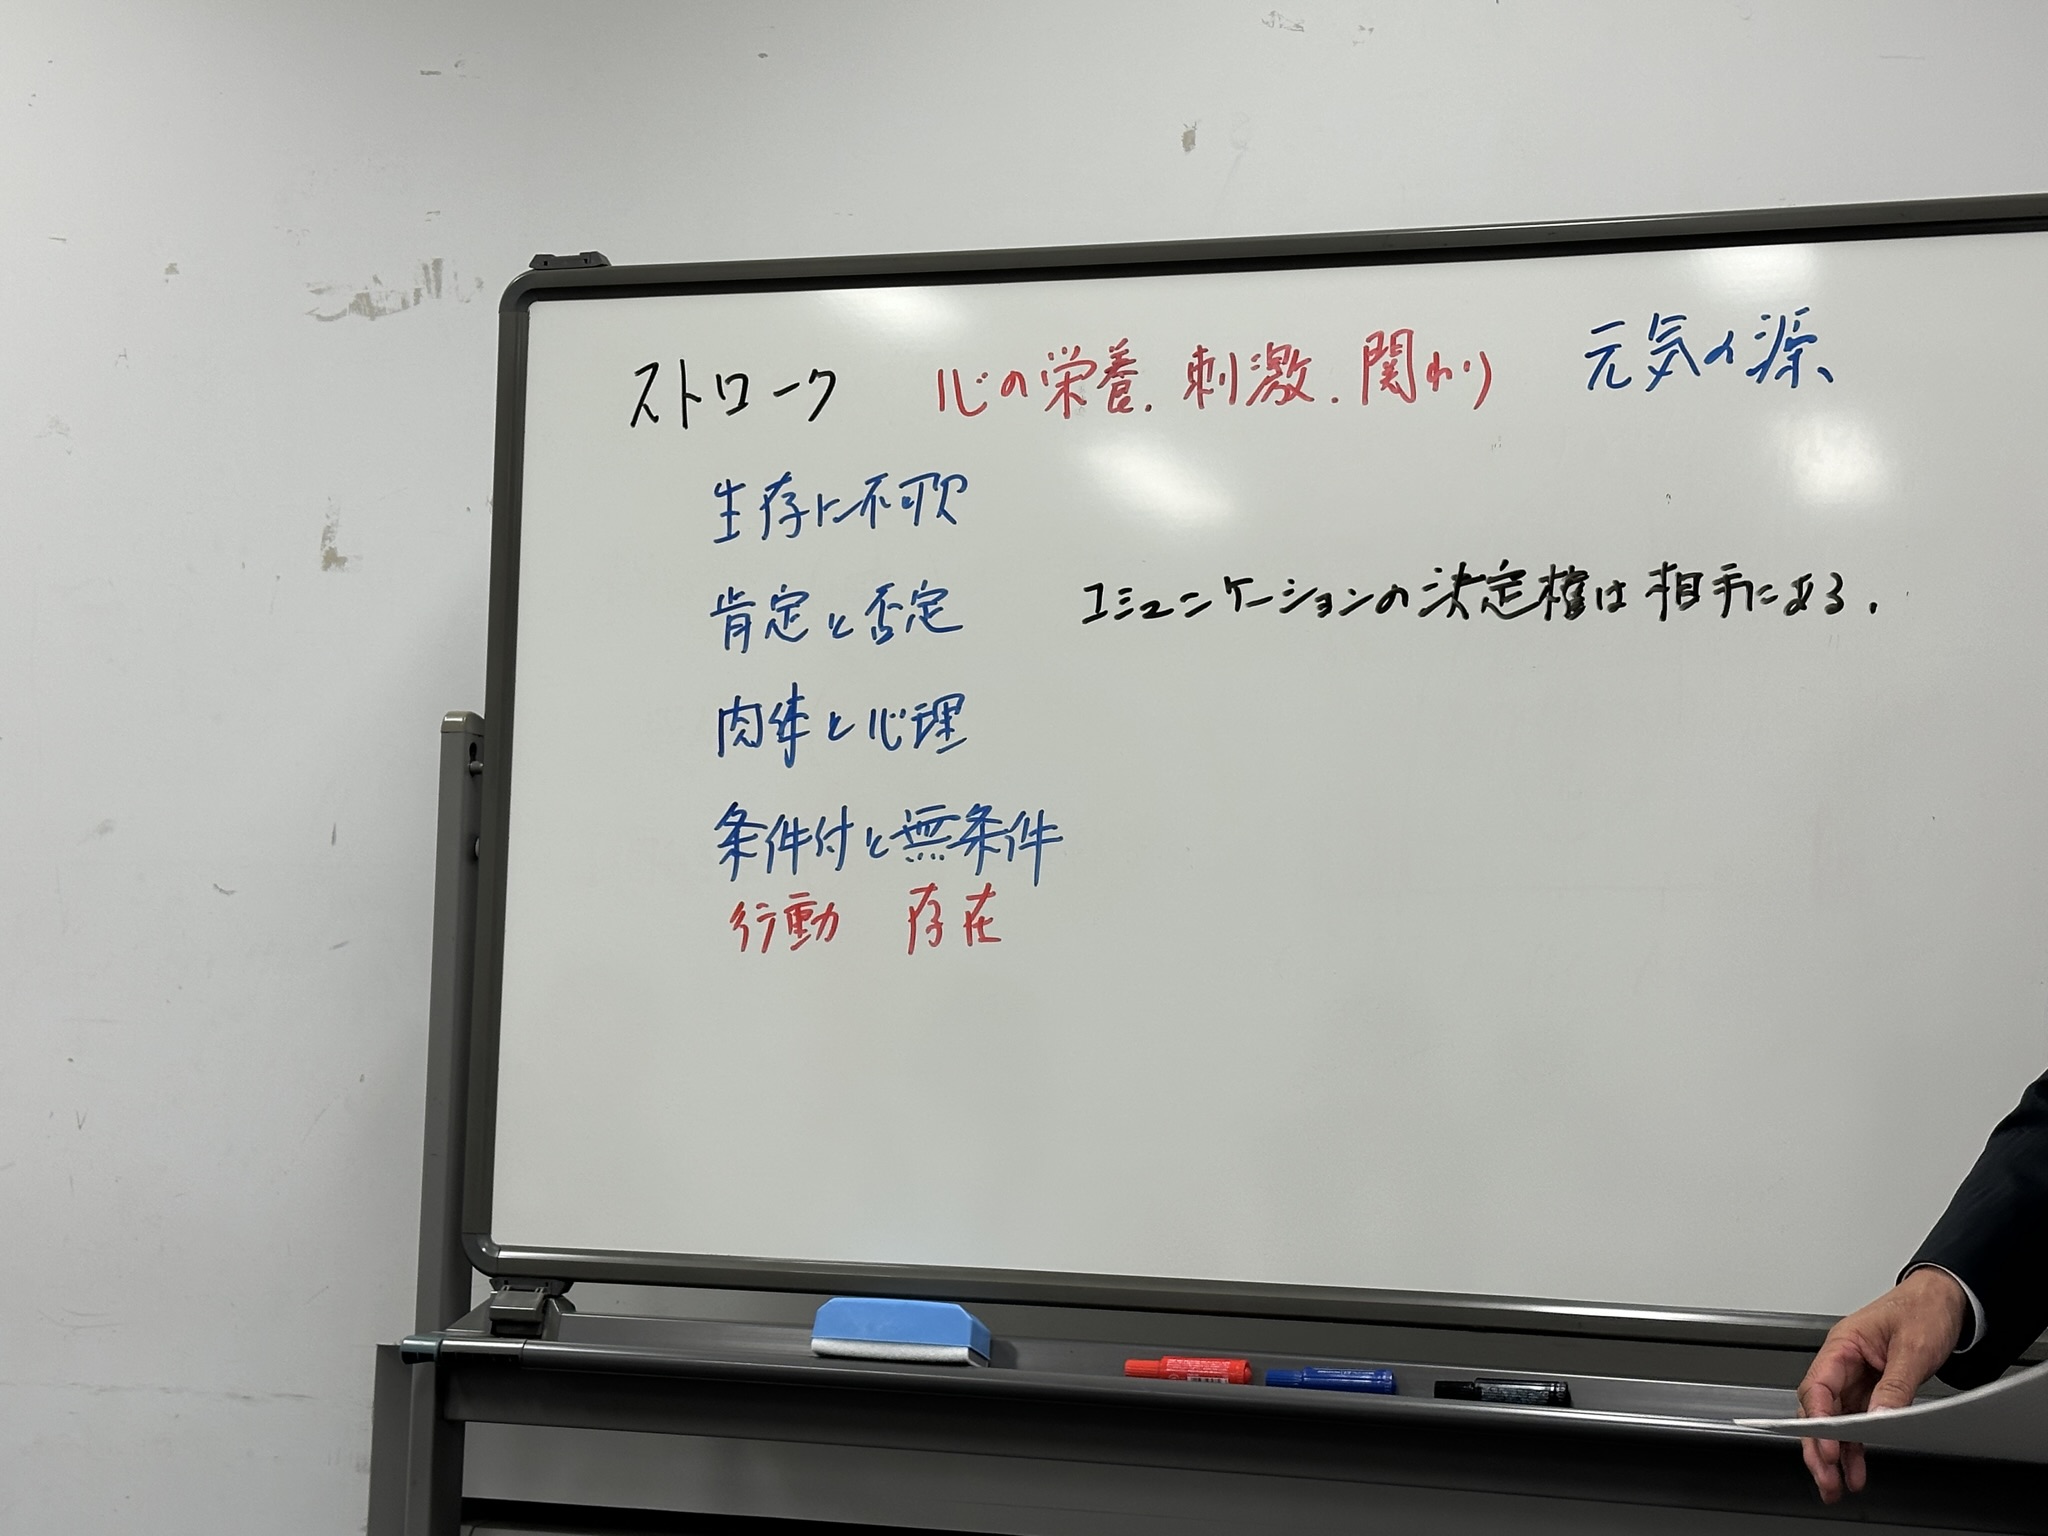 ストローク 心の栄養. 刺激. 関わり 元気の源、
生存に不可欠
肯定と否定 コミュニケーションの決定権は相手にある.
肉体と心理
条件付と無条件
行動 存在